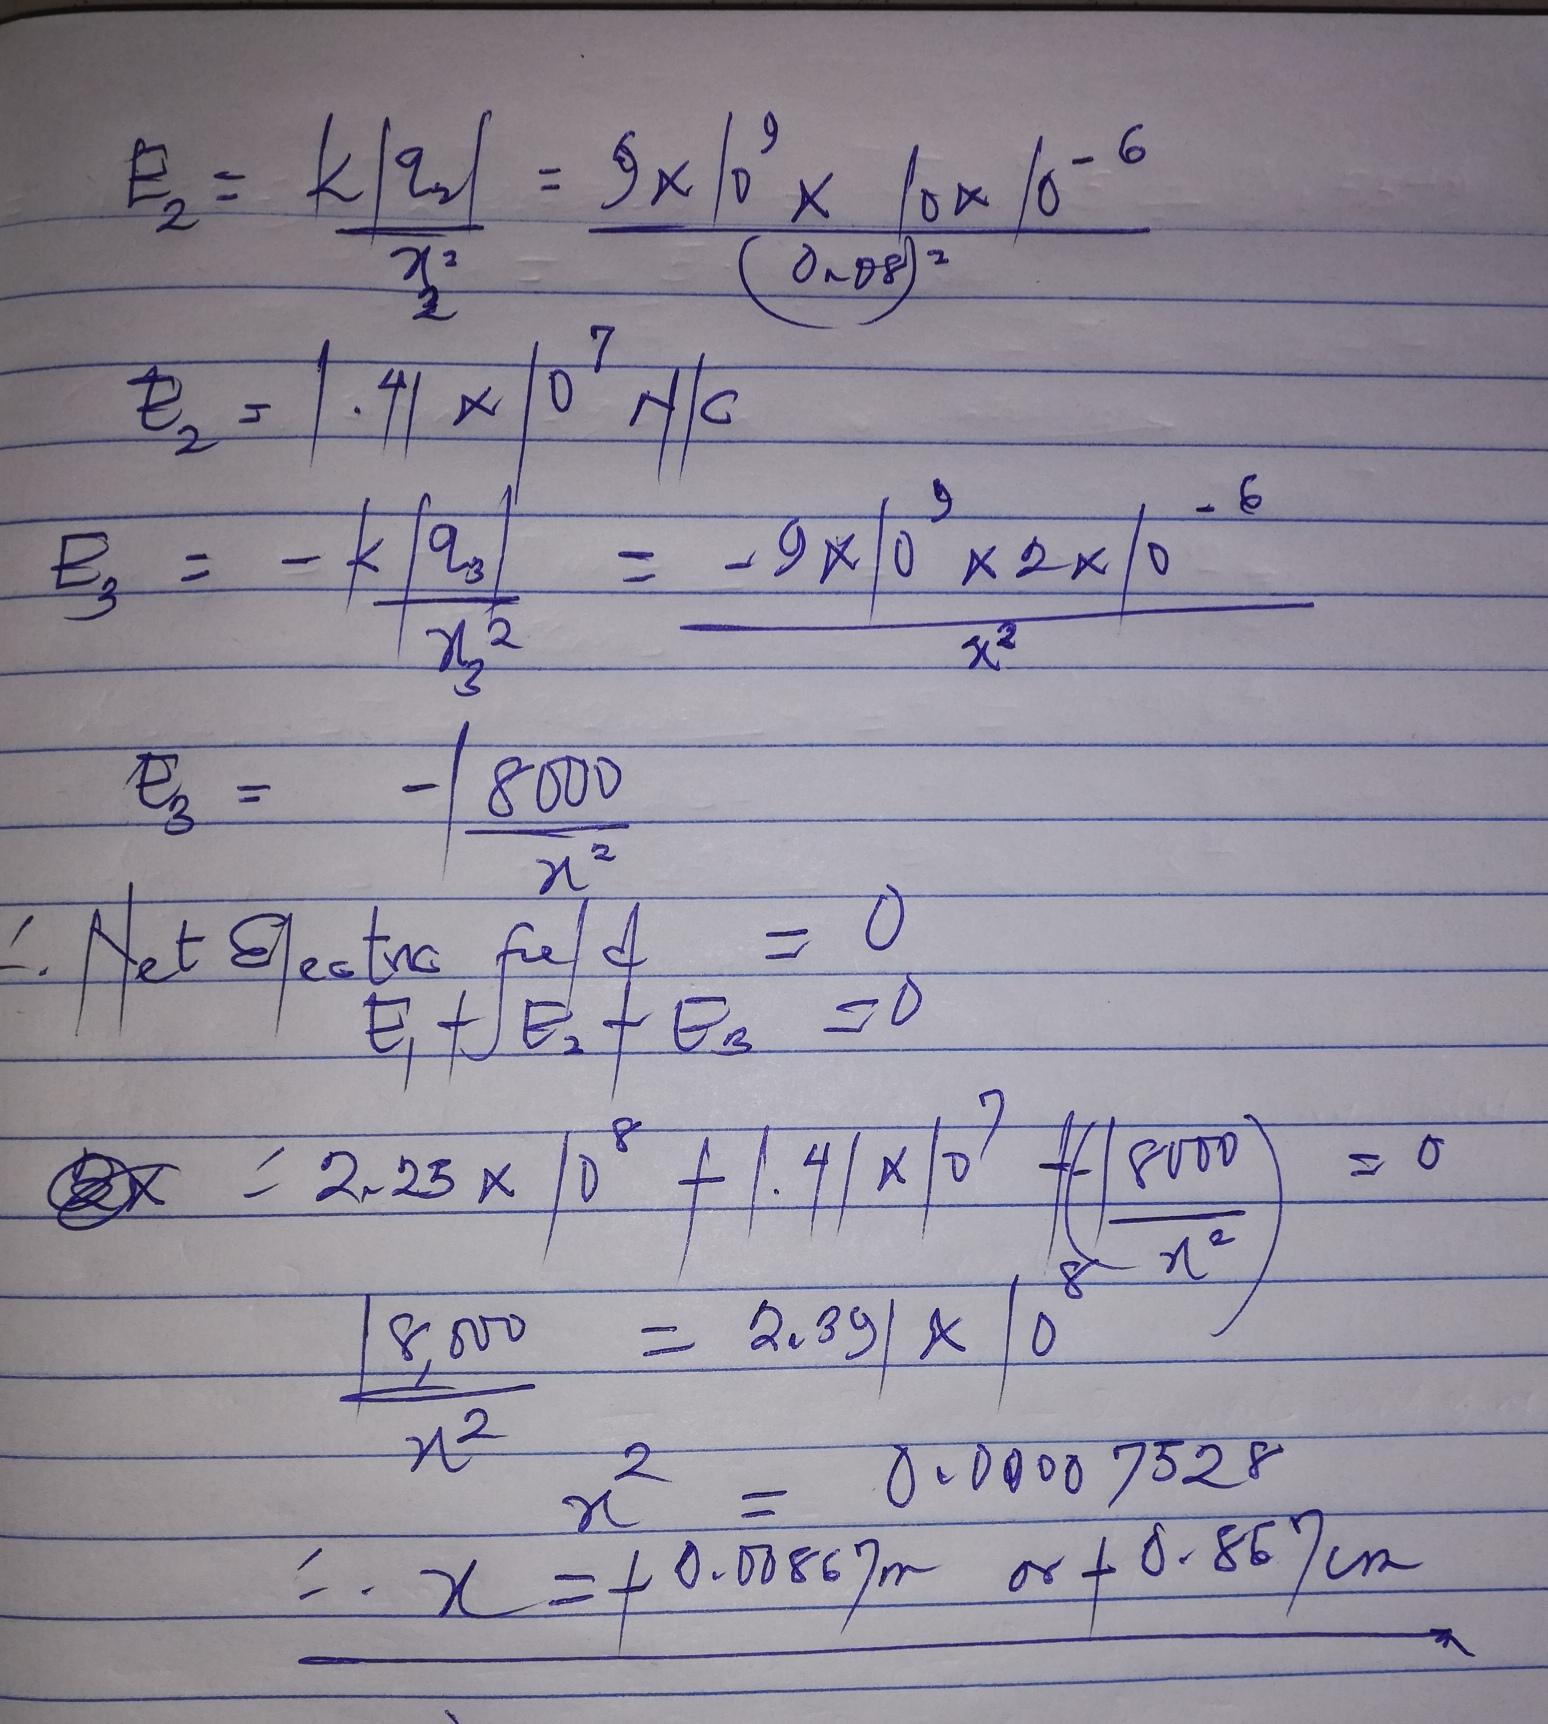 E₂ = k|q₂| / x₂² = 9x10⁹ x 10x10⁻⁶ / (0.08)²
E₂ = 1.41 x 10⁷ N/C
E₃ = -k|q₃| / x₃² = -9x10⁹ x 2x10⁻⁶ / x²
E₃ = -18000 / x²
∴ Net Electric field = 0
E₁ + E₂ + E₃ = 0
= 2.25 x 10⁸ + 1.41 x 10⁷ + (-18000 / x²) = 0
18,000 / x² = 2.391 x 10⁸
x² = 0.00007528
∴ x = +0.00867m or +0.867cm